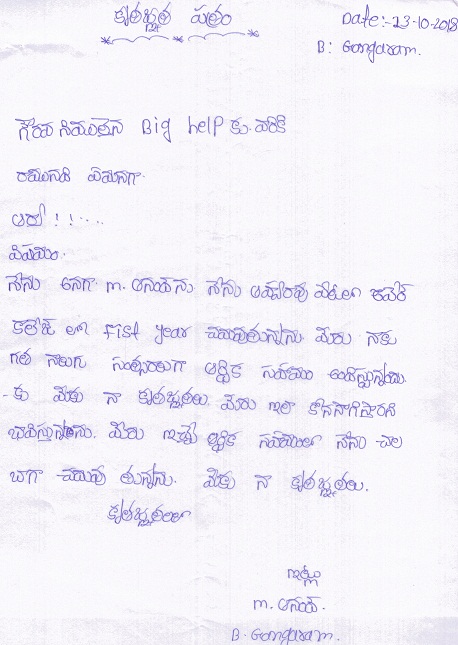 కృతజ్ఞత పత్రం
Date:-23-10-2018
B: Gangaram.
గౌరవ నియులైన Big help కు. వారికి
రాయునది ఏమనగా.
ఆర్య !! ....
విషయం.
నేను అనగా. m. నేను
కాలేజ్ లో Fist year చదువుతున్నాను. మీరు నాకు
గత నాలుగు సంత్సరాలుగా ఆర్థిక సహాయం
- కు మీకు నా కృతజ్ఞతలు. మీరు ఇలా కొనసాగిస్తారని
భావిస్తున్నాను. మీరు ఇచ్చే ఆర్థిక సహాయంలో నేను చాల
బాగా చదువు తున్నాను. మీకు నా కృతజ్ఞతలు.
కృతజ్ఞతలలో
ఇట్లు
m.
B. Gangaram.